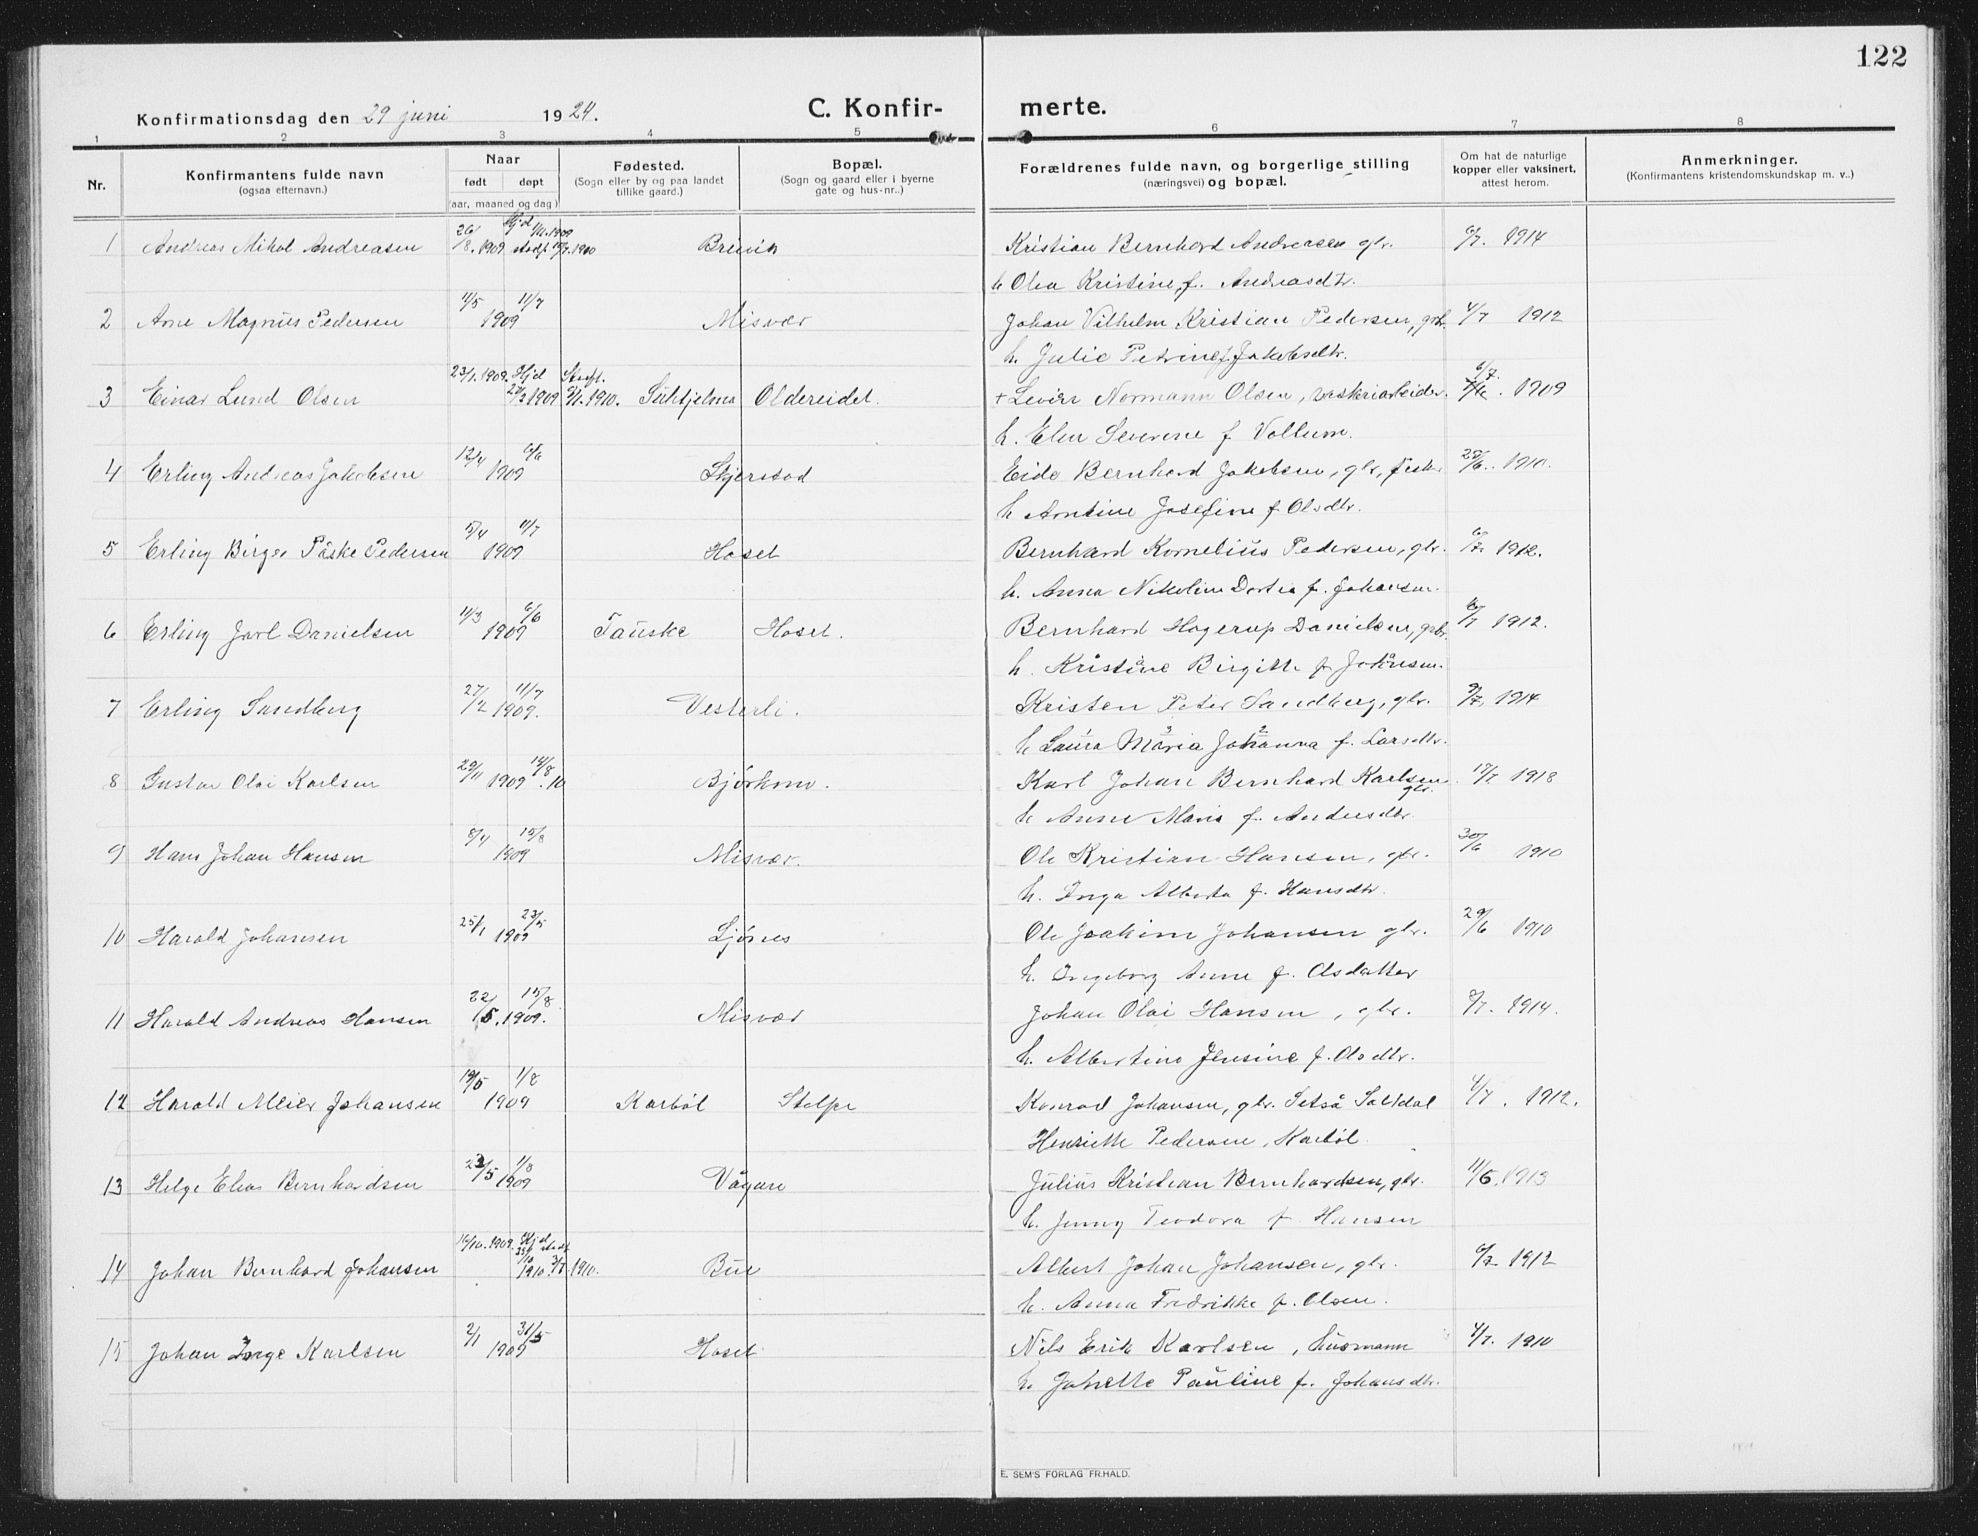 122
Konfirmationsdag den 29 juni 1924. C. Konfir- merte.
1 2 3 4 5 6 7 8
Nr. Konfirmantens fulde navn (ogsaa efternavn.) Naar født døpt (aar, maaned og dag) Fødested. (Sogn eller by og paa landet tillike gaard.) Bopæl. (Sogn og gaard eller i byerne gate og hus-nr..) Forældrenes fulde navn, og borgerlige stilling (næringsvei) og bopæl. Om hat de naturlige kopper eller vaksinert, attest herom. Anmerkninger. (Konfirmantens kristendomskundskap m. v..)
1 Andreas Mikal Andreasen 26/8. 1909 Brinvik Kristian Bernhard Andreasen gbr. 6/7. 1914
h Olea Kristine f. Andreasdtr.
2 Arne Magnus Pedersen 11/5 11/7 1909 Misvær Johan Vilhelm Kristian Pedersen, gbr. 4/7 1912
h. Julie Petrine f. Jakobsdtr.
3 Einar Lund Olsen 23/1. 1909. Hjd 1909 1910. Sulitjelma Oldereidet. + Levin Normann Olsen, vaskeriarbeider. 1909
h. Elen Severine f Vollum.
4 Erling Andreas Jakobsen 12/4 6/6 1909 Skjerstad Eide Bernhard Jakobsen, gbr, fisker 25/6. 1910.
h Arntine Josefine f Olsdtr.
5 Erling Birger Påske Pedersen 5/4 11/7 1909 Hoset Bernhard Kornelius Pedersen, gbr. 6/7. 1912.
h. Anna Nikoline Dortea f. Johansen.
6 Erling Jarl Danielsen 11/3 6/6 1909 Fauske Hoset. Bernhard Hagerup Danielsen, gbr. 6/7 1912.
h. Kristine Birgitte f Johansen.
7 Erling Sandberg 27/2 11/7 1909. Vesterli. Kristen Peter Sandberg, gbr. 9/7. 1914
h Laura Maria Johanna f. Larsdtr.
8 Gustav Olai Karlsen 29/11 1909 14/8.10 Bjørkmo. Karl Johan Bernhard Karlsen gbr. 18/7 1918
h Anne Maris f. Andersdtr.
9 Hans Johan Hansen 8/4 15/8 1909 Misvær. Ole Kristian Hansen, gbr. 30/6 1910
h. Inga Alberta f. Hansdtr.
10 Harald Johansen 25/1 23/5 1909 Ljønes Ole Joakim Johansen gbr. 29/6 1910
h. Ingeborg Anne f. Olsdatter
11 Harald Andreas Hansen 22/5. 15/8 1909. Misvær Johan Olai Hansen, gbr. 1914.
h. Albertine Jensine f. Olsdtr.
12 Harald Meier Johansen 19/5 1/8 1909 Karbøl Stolpe Konrad Johansen, gbr. Setså Saltdal 4/7. 1912.
Henriette Pedersen, Karbøl.
13 Helge Elias Bernhardsen 23/5 1/8 1909 Vågan Julius Kristian Bernhardsen, gbr. 11/6. 1913
h. Jenny Teodora f. Hansen
14 Johan Bernhard Johansen 16/10. 1909. Hjd 1910. 1910. Bue Albert Johan Johansen, gbr. 6/7 1912
h. Anna Fredrikke f. Olsen.
15 Johan Inge Karlsen 2/1 31/5 1909 Hoset Nils Erik Karlsen, husmann 4/7. 1910
h. Janette Pauline f. Johansdtr.
E. SEM'S FORLAG FR.HALD.